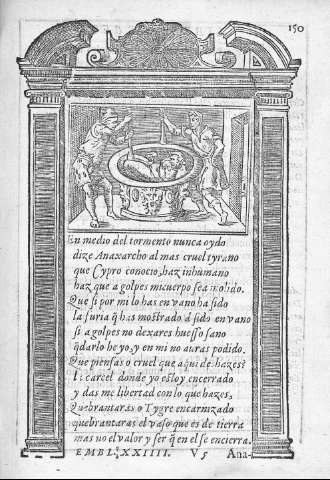 150
En medio del tormento nunca oydo
dize Anaxarcho al mas cruel tyrano
que Cypro conocio, haz inhumano
haz que a golpes mi cuerpo sea molido.
Que si por mi lo has en vano ha sido
la furia q̃ has mostrado, à sido en vano
si a golpes no dexares huesso sano
q̃darlo he yo, y en mi no auras podido.
Que piensas o cruel que aqui de hazes?
carcel donde yo estoy encerrado
y das me libertad con lo que hazes,
Quebrantaras o Tygre encarnizado
quebrantaras el vaso que es de tierra
mas no el valor y ser q̃ en el se encierra.
EMBL. XXIIII. V5 Ana-